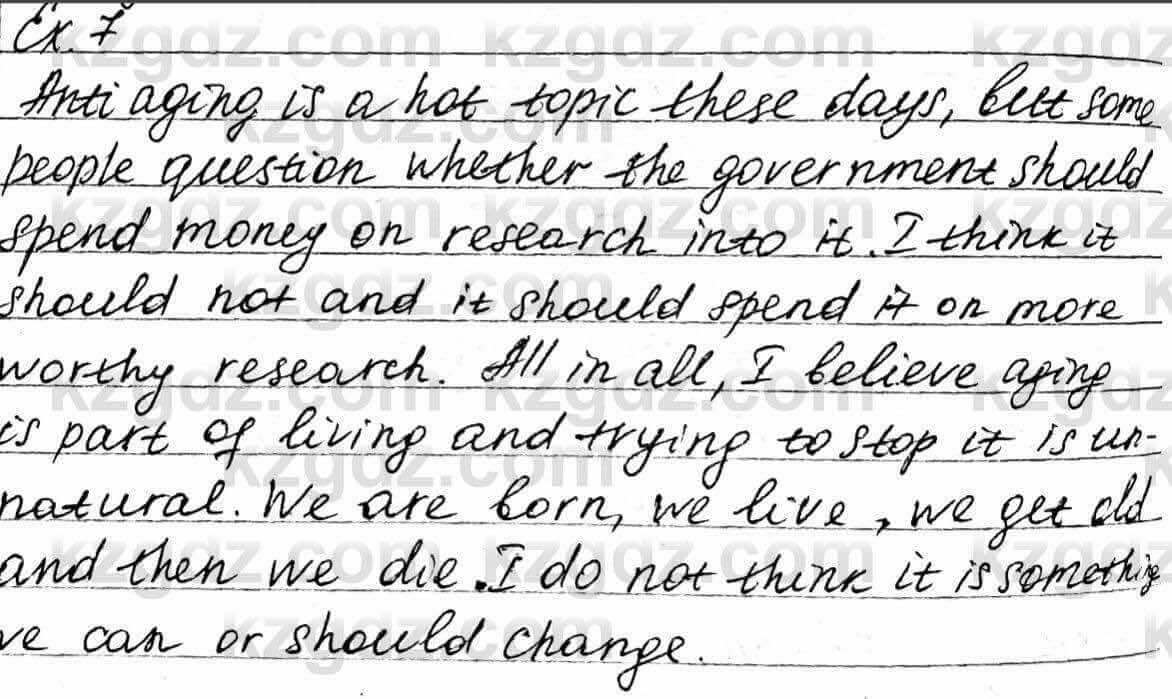 Ex. 7
Anti aging is a hot topic these days, but some
people question whether the government should
spend money on research into it. I think it
should not and it should spend it on more
worthy research. All in all, I believe aging
is part of living and trying to stop it is un-
natural. We are born, we live, we get old
and then we die. I do not think it is something
we can or should change.
kzgdz.com